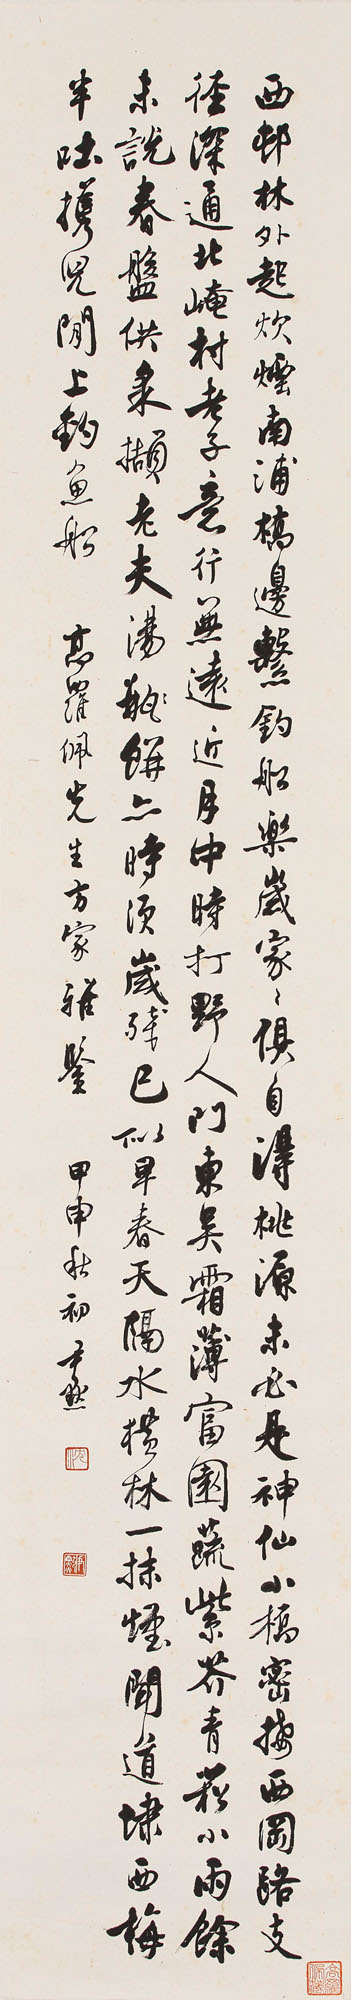 西邨林外起炊煙南浦橋邊繫釣船樂歲家〻俱自得桃源未必是神仙小橋密接西岡路支
徑深通北崦村老子意行無遠近月中時打野人門東吳霜薄富園蔬紫芥青菘小雨餘
未說春盤供采擷老夫湯餅亦時須歲殘已似早春天隔水橫林一抹煙聞道埭西梅
半吐攜兒閒上釣魚船
高羅佩先生方家雅鑒
甲申秋初尹默
沈
尹默